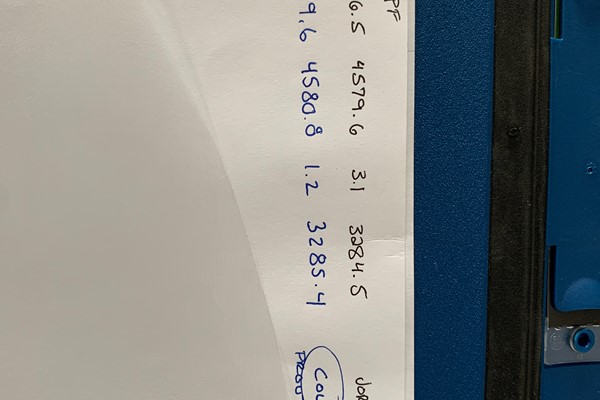 PF
6.5 4579.6 3.1 3284.5
9.6 4580.8 1.2 3285.4